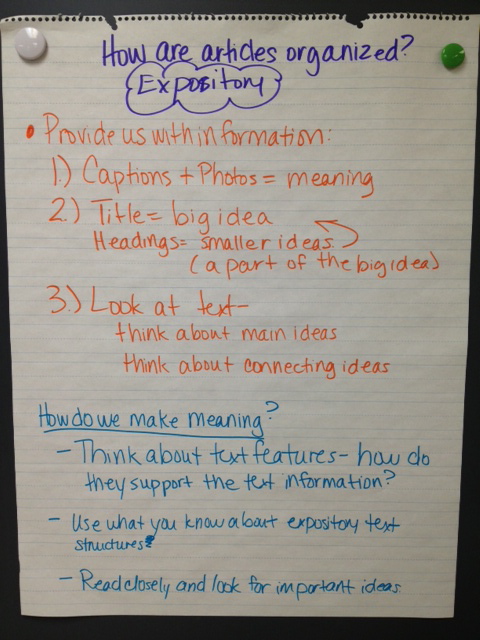 How are articles organized?
Expository
• Provide us with information:
1.) Captions + Photos = meaning
2.) Title = big idea
Headings = smaller ideas.
(a part of the big idea)
3.) Look at text-
think about main ideas
think about connecting ideas
How do we make meaning?
- Think about text features - how do
they support the text information?
- Use what you know about expository text
structures.
- Read closely and look for important ideas.